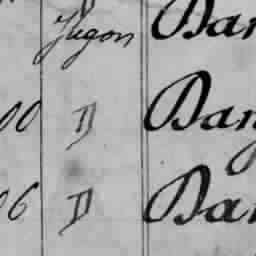 Jugon Dan
00 D Dang
06 D Dan